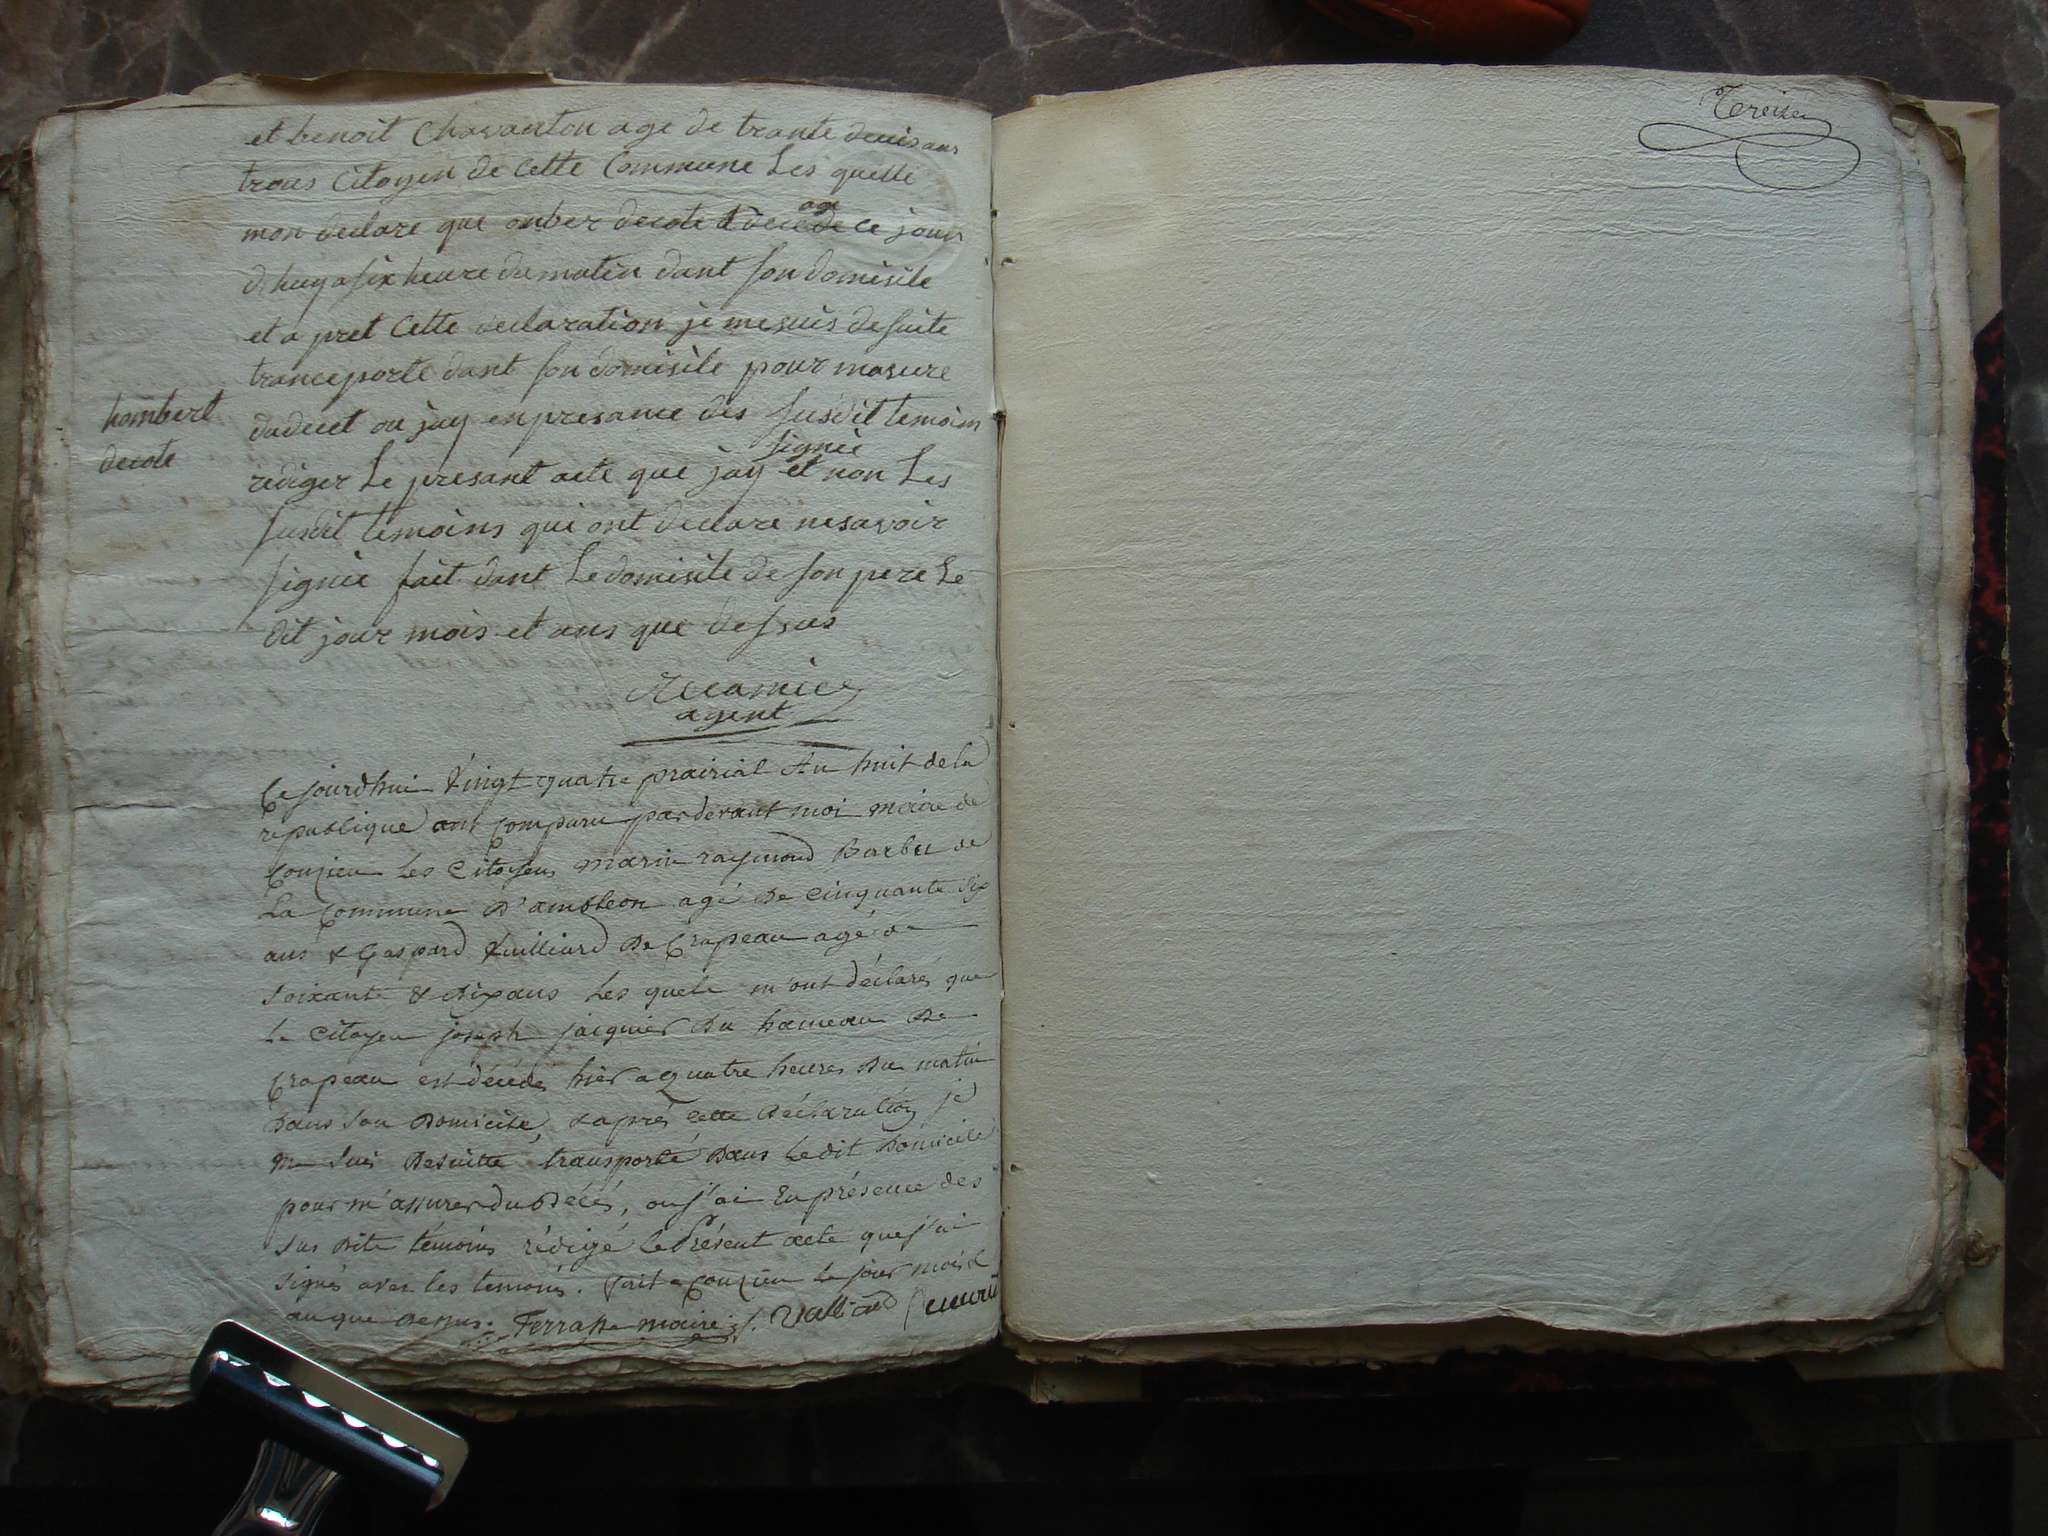 et benoit Chavanton age de trante deuis ans
trous Citoyen de Cette Commune Les quelle
mon declare que onber decote decede ce jour
dhuy a six heure du matin dant son domisile
et a pret Cette declaration je me suis de suite
tranceporte dant son domisile pour masure
hombert
decote
dudecet ou jay en presance des susdit temoins
signie
rediger Le presant acte que jay et non Les
susdit temoins qui ont declare ne savoir
signie fait dant Le domisile de son pere Le
dit jour mois et ans que dessus
Recamier
agent
Ce jourdhui Vingt quatre prairial An huit de la
republique ont Comparu pardevant moi maire de
Conzieu Les Citoyens marin raymond Barbu de
La Commune D'ambleon agé De Cinquante Six
ans & Gaspard Vuilliard De Crapeau agé de
Soixante & dix ans Les quels m'ont déclarés que
Le Citoyen joseph jaiquier Du hameau De
Crapeau est décédé hier a quatre heures Du matin
Dans Son Domicile, & après cette Déclaration je
me suis Desuitte transporté Dans Le dit Domicile
pour m'assurer du Décés, ou j'ai En présence des
Sus Dits témoins rédigé Le Présent acte que j'ai
Signés avec les temoins. fait a Conzieu Le jour mois &
an que Dessus. Terrasse maire
Treize